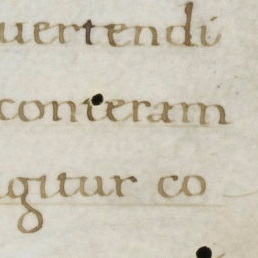 uertendi
conteram
igitur co